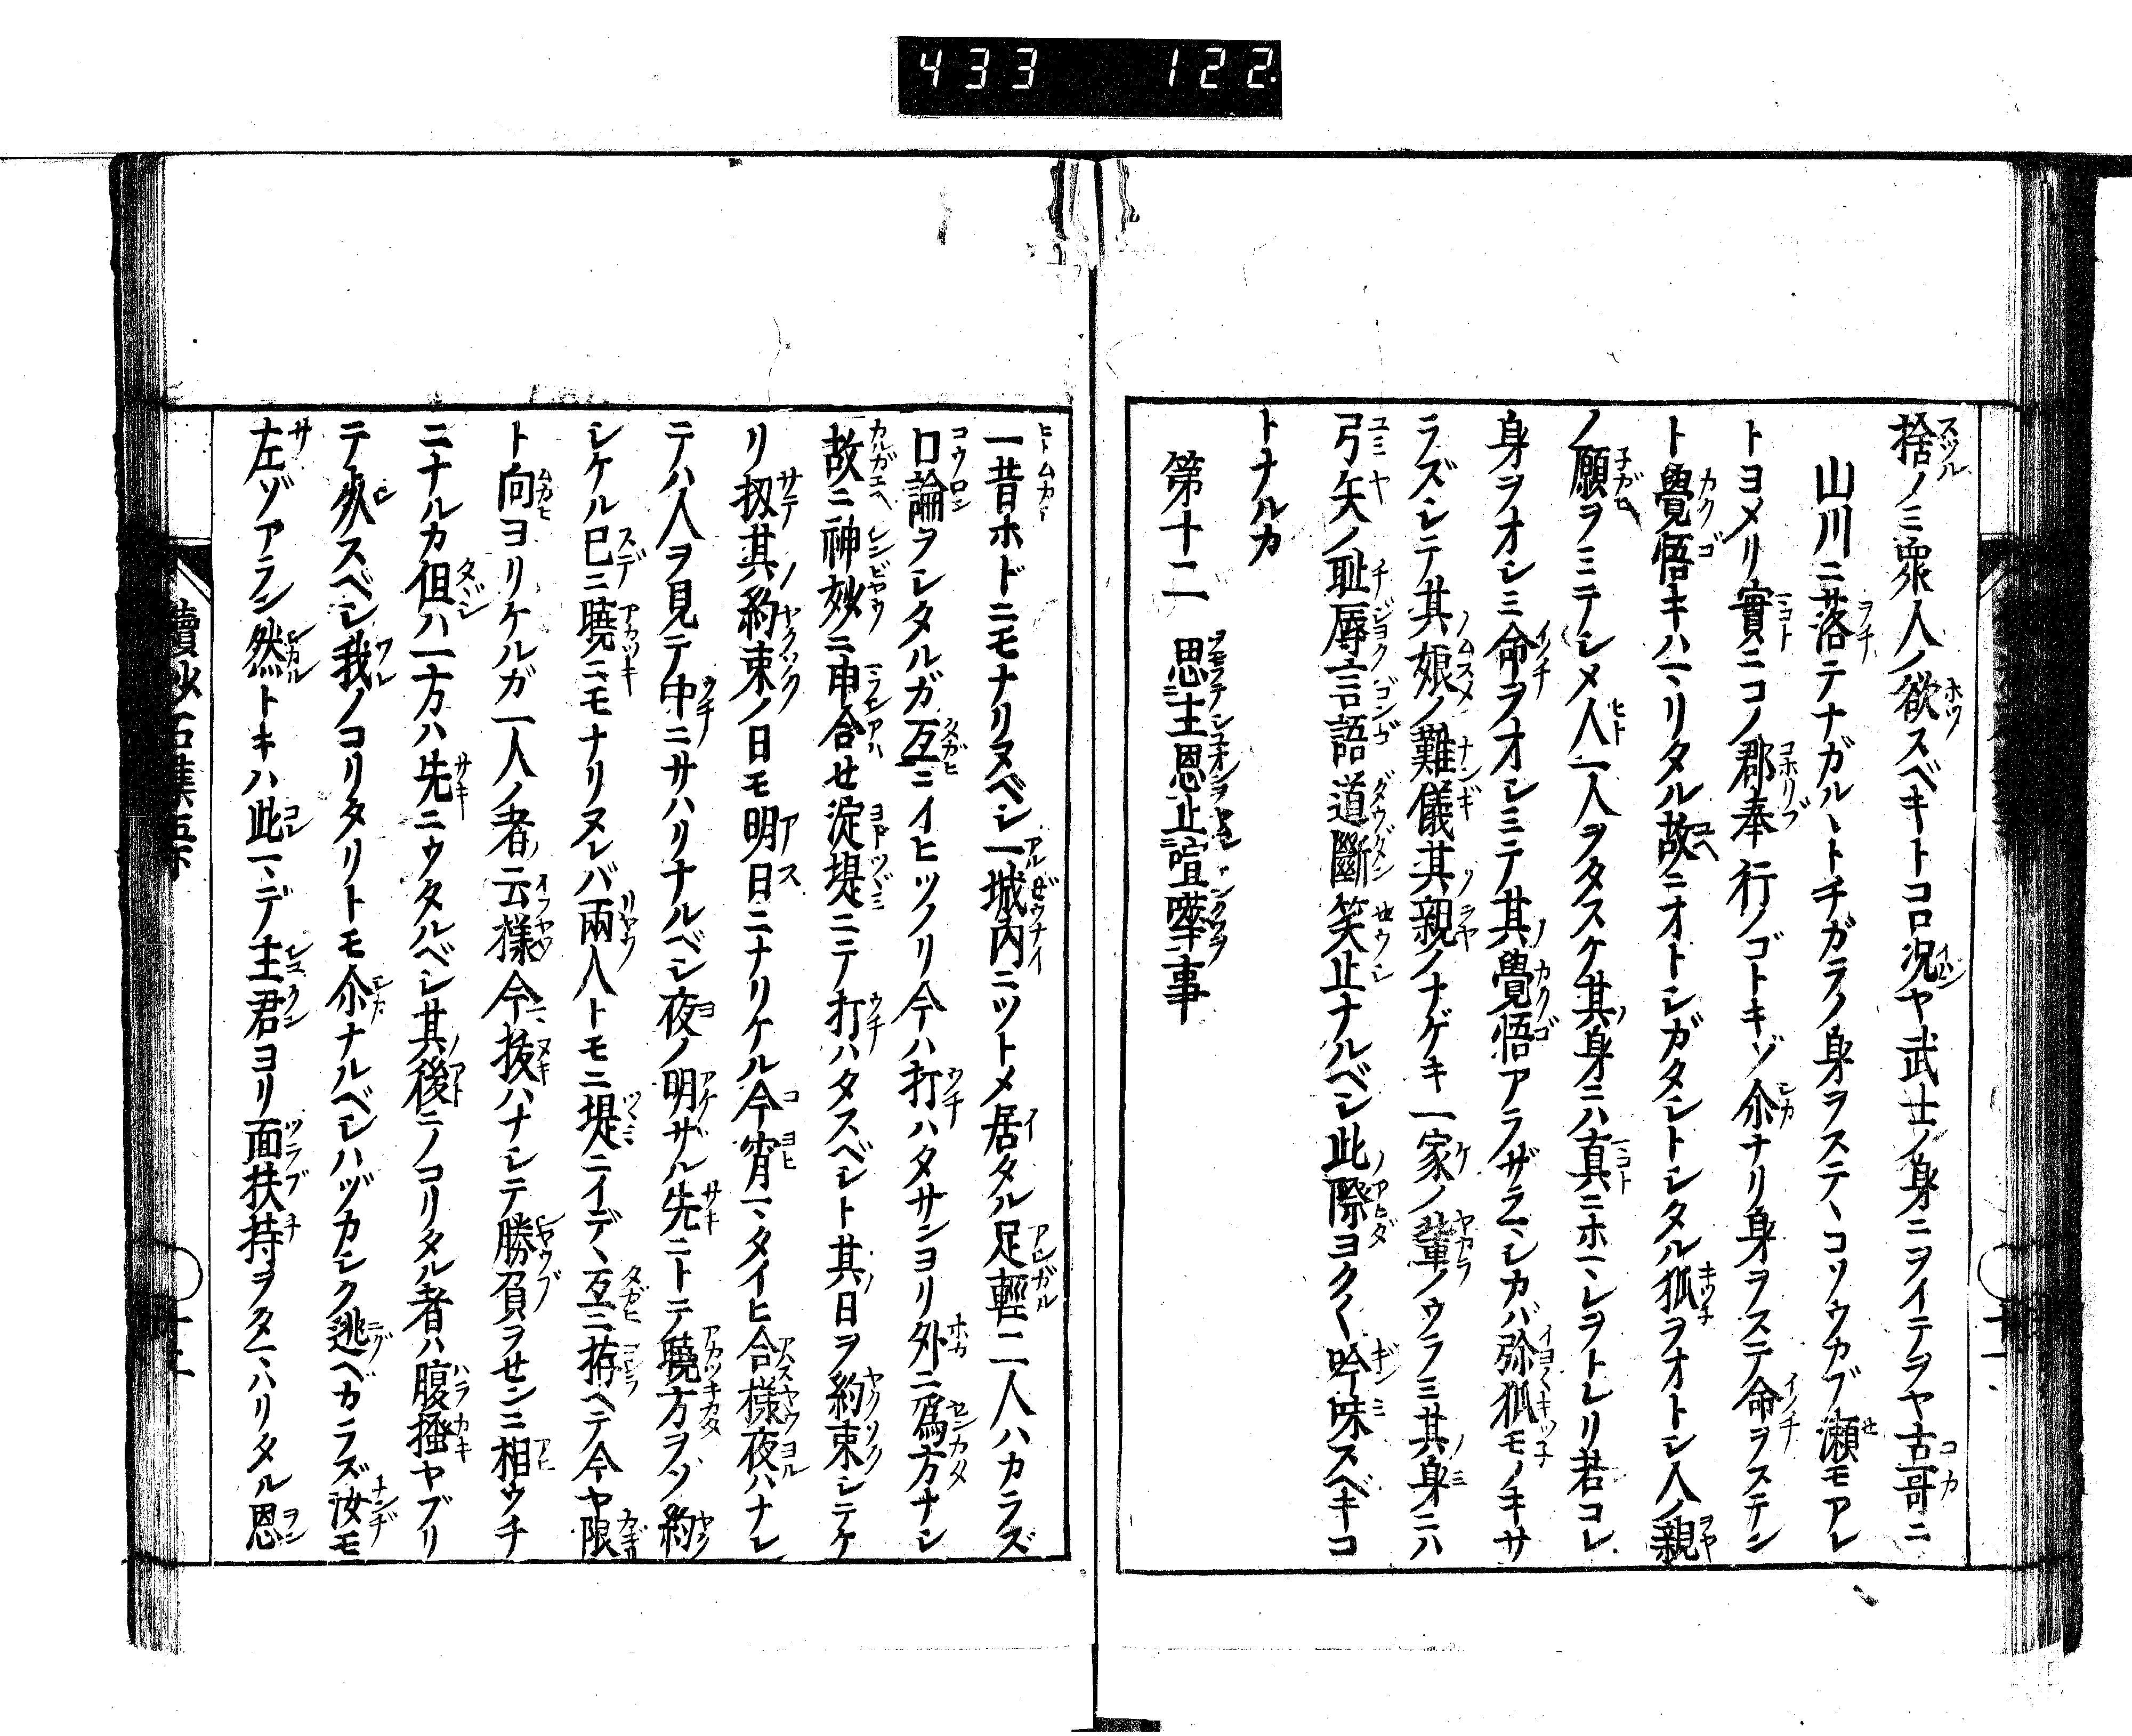 433 122
捨ノミ衆人ノ欲スベキトコロ況ヤ武士ノ身ニヲイテヲヤ古哥ニ
山川ニ落テナガルヽトチガラノ身ヲステヽコソウカブ瀬モアレ
トヨメリ實ニコノ郡奉行ノゴトキゾ尒ナリ身ヲステ命ヲステン
ト覺悟キハマリタル故ニオトシガタシトシタル狐ヲオトシ人ノ親
ノ願ヲミテシメ人一人ヲタスケ其身ニハ真ニホマレヲトレリ若コレ
身ヲオシミ命ヲオシミテ其覺悟アラザラマシカバ弥狐モノキサ
ラズシテ其娘ノ難儀其親ノナゲキ一家ノ輩ノウラミ其身ニハ
弓矢ノ耻辱言語道斷笑止ナルベシ此際ヨク〱吟味スベキコ
トナルカ
第十二 思主恩止喧嘩事
一昔ホドニモナリヌベシ一城内ニツトメ居タル足輕二人ハカラズ
口論ヲシタルガ互ニイヒツノリ今ハ打ハタサンヨリ外ニ爲方ナシ
故ニ神妙ニ申合せ淀堤ニテ打ハタスベシト其日ヲ約束シテケ
リ扨其約束ノ日モ明日ニナリケル今宵マタイヒ合様夜ハナレ
テハ人ヲ見テ中ニサハリナルベシ夜ノ明サル先ニトテ曉方ヲゾ約
シケル已ニ曉ニモナリヌレバ兩人トモニ堤ニイデヽ互ニ拵ヘテ今ヤ限
ト向ヨリケルガ一人ノ者云樣今抜ハナシテ勝負ヲせンニ相ウチ
ニナルカ但ハ一方ハ先ニウタルベシ其後ニノコリタル者ハ腹搔ヤブリ
テ死スベシ我ノコリタリトモ尒ナルベシハヅカシク逃ベガラズ汝モ
左ゾアラン然トキハ此マデ主君ヨリ面扶持ヲタマハリタル恩